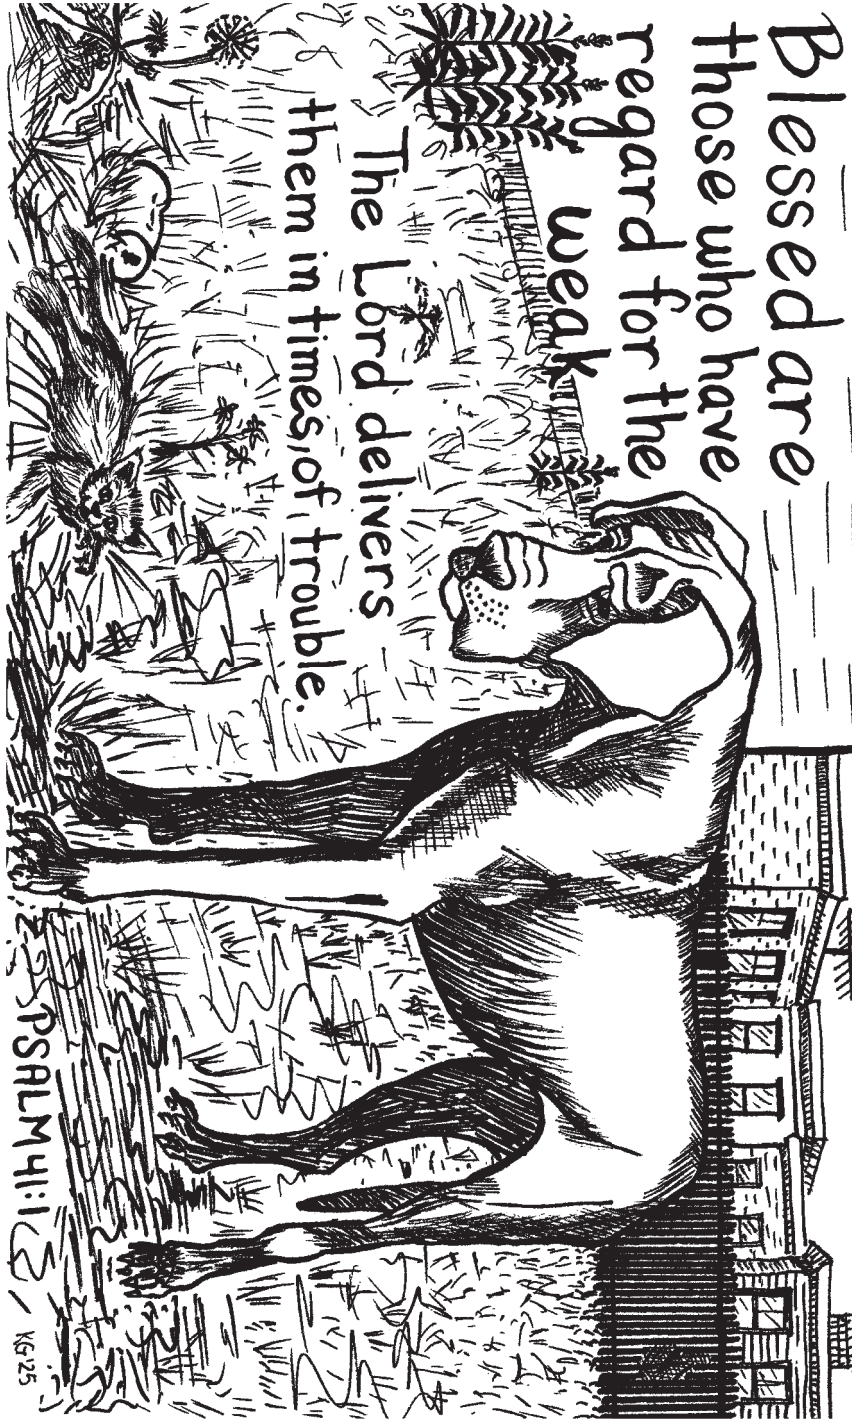 Blessed are
those who have
regard for the
weak
The Lord delivers
them in times, of, trouble.
PSALM 41:1
KG'25